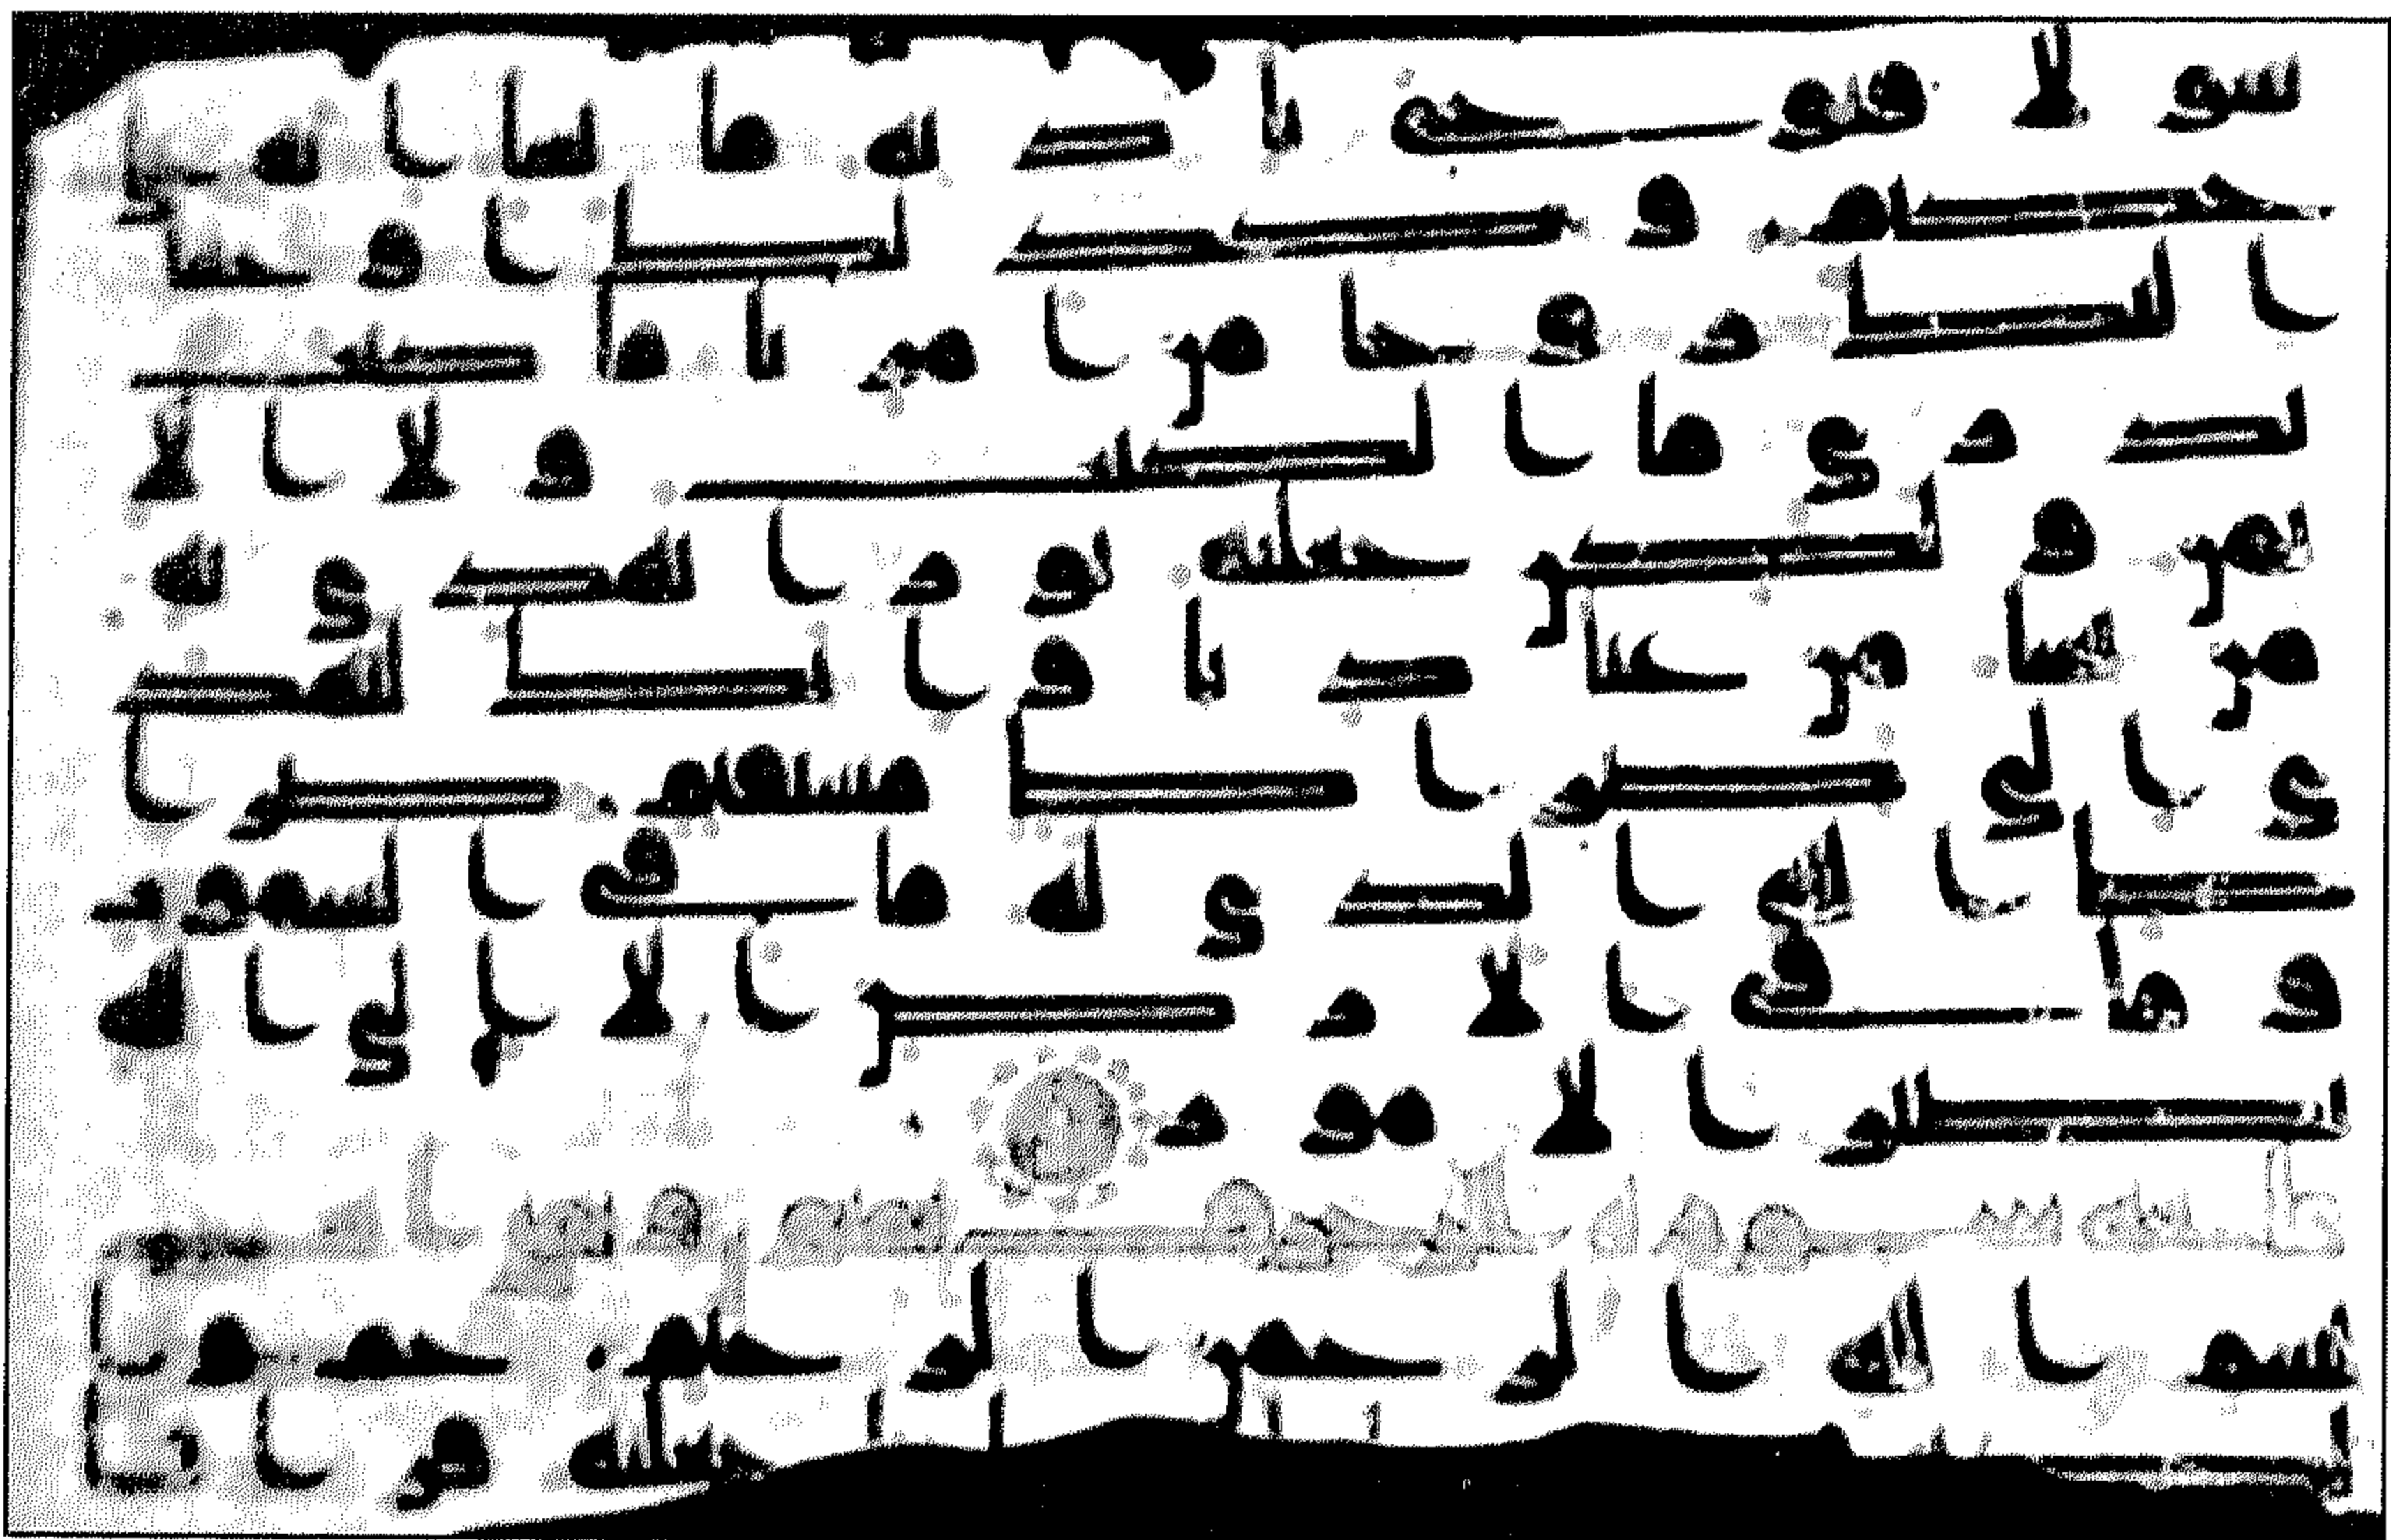 سولا فيوحى باذنه ما يشا انه على
حكيم وكذلك اوحينا
اليك روحا من امرنا ما كنت
تدرى ما الكتب ولا الا
يمن ولكن جعلنه نورا نهدى به
من نشا من عبادنا وانك لتهد
ى الى صرط مستقيم صر
ط الله الذى له ما فى السموت
وما فى الارض الا الى الله
تصير الامور
بسم الله الرحمن الرحيم حم وا
جعلنه قرانا